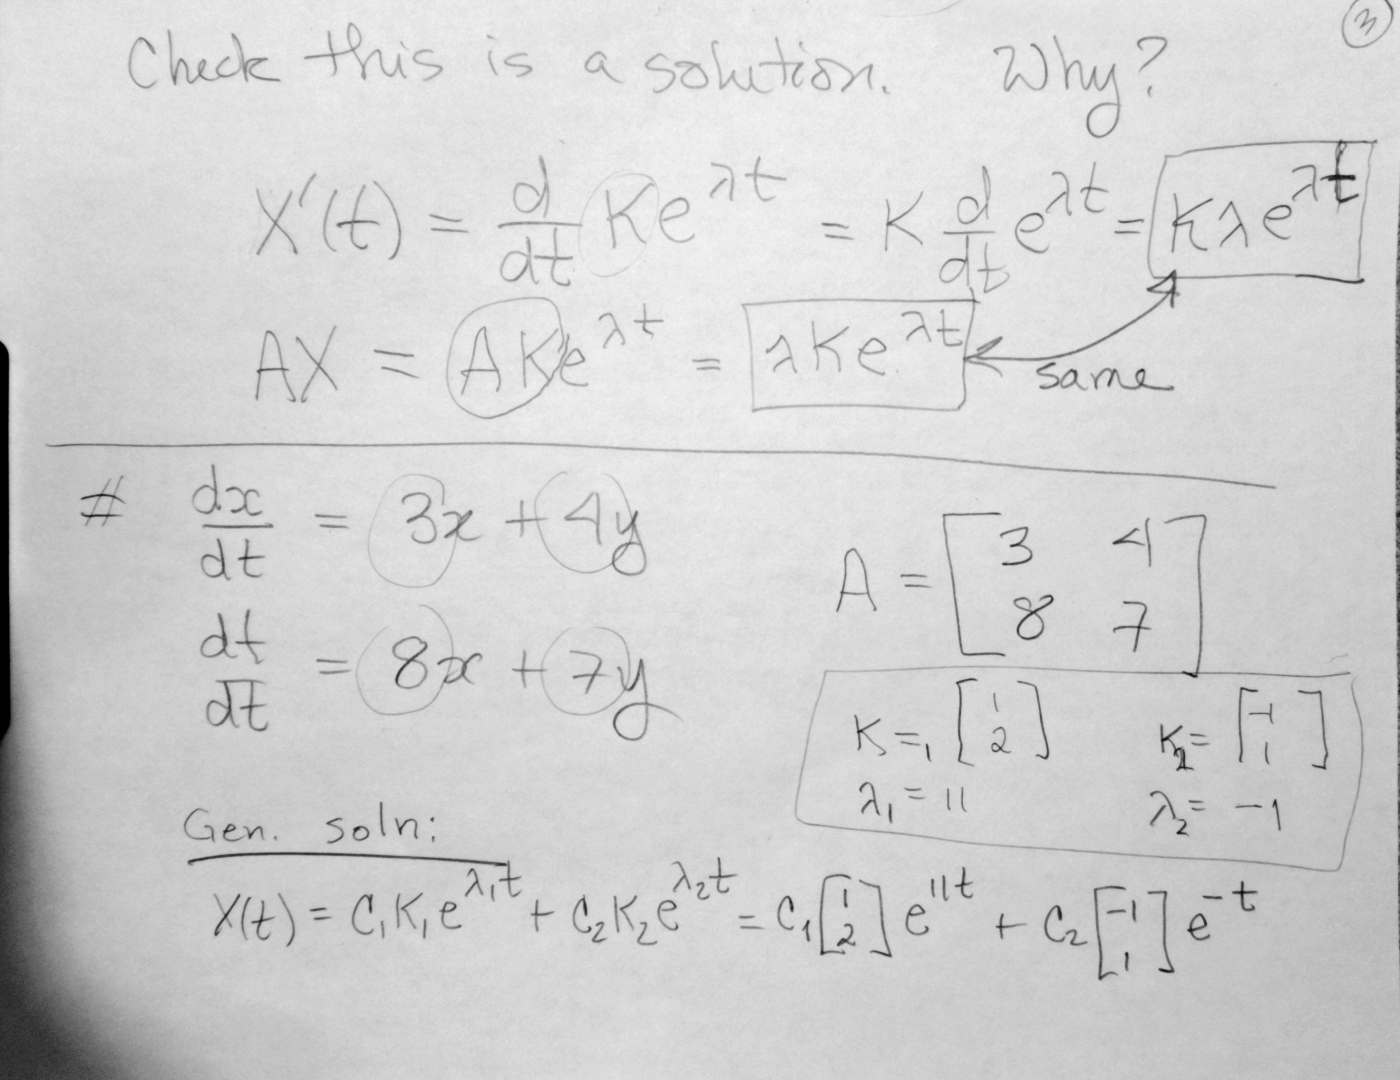 ③
Check this is a solution. Why?
X'(t) = d/dt Ke^{λt} = K d/dt e^{λt} = Kλe^{λt}
AX = AKe^{λt} = λKe^{λt}
same
# dx/dt = 3x + 4y
A = [3 4; 8 7]
dt/dt = 8x + 7y
K₁ = [1; 2] K₂ = [-1; 1]
λ₁ = 11 λ₂ = -1
Gen. soln:
X(t) = C₁K₁e^{λ₁t} + C₂K₂e^{λ₂t} = C₁[1; 2]e^{11t} + C₂[-1; 1]e^{-t}